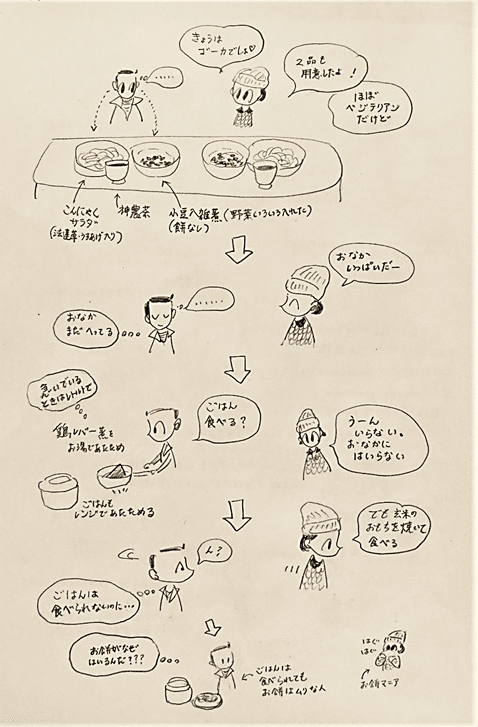 きょうは
ゴーカでしょ♡
……
2品も
用意したよ!
ほぼ
ベジテリアン
だけど
こんにゃく
サラダ
(法蓮草・うすあげ入り)
神農茶
小豆入雑煮(野菜いろいろ入れた)
(餅なし)
おなか
いっぱいだー
……
おなか
まだへってる
急いでいる
ときはレトルトで
鶏レバー煮を
お湯であたため
ごはん
食べる?
うーん
いらない。
おなかに
はいらない
ごはんも
レンジであたためる
でも玄米の
おもちを焼いて
食べる
ん?
ごはんは
食べられないのに…
お餅がなぜ
はいるんだ???
ごはんは
食べられても
お餅はムリな人
はぐ
はぐ
お餅マニア